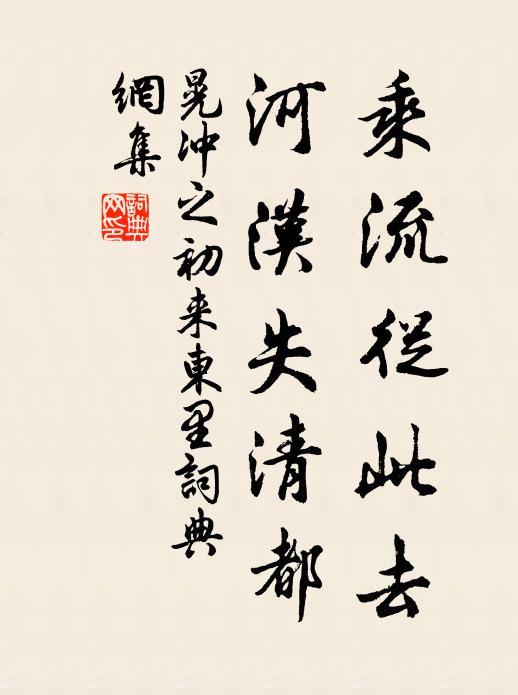 乘流從此去
河漢失清都
晁冲之初来東里詞典
網集
詞典
网印